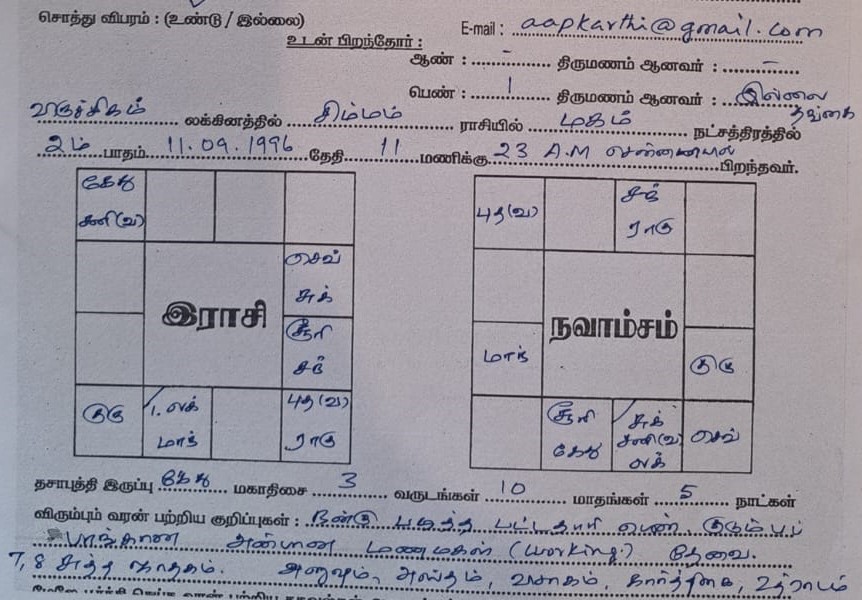 சொத்து விபரம் : (உண்டு / இல்லை)
E-mail : aapkarthi@gmail.com
உடன் பிறந்தோர் :
ஆண் : - திருமணம் ஆனவர் : -
பெண் : 1 திருமணம் ஆனவர் : இல்லை
தங்கை
விருச்சிகம் லக்கினத்தில் சிம்மம் ராசியில் மகம் நட்சத்திரத்தில்
2ம் பாதம் 11.09.1996 தேதி 11 மணிக்கு 23 A.M சென்னையில் பிறந்தவர்.
கேது
சனி(வ)
செவ்
சுக்
இராசி
சூரி
சந்
குரு
1. லக்
மாந்
புத(வ)
ராகு
புத(வ)
சந்
ராகு
நவாம்சம்
மாந்
குரு
சூரி
கேது
சுக்
சனி(வ)
லக்
செவ்
தசாபுத்தி இருப்பு கேது மகாதிசை 3 வருடங்கள் 10 மாதங்கள் 5 நாட்கள்
விரும்பும் வரன் பற்றிய குறிப்புகள் : நன்கு படித்த பட்டதாரி பெண், குடும்பப்
பாங்கான அன்பான மணமகள் (working) தேவை.
7, 8 சுத்த ஜாதகம். அனுஷம், அஸ்தம், விசாகம், கார்த்திகை, உத்ராடம்